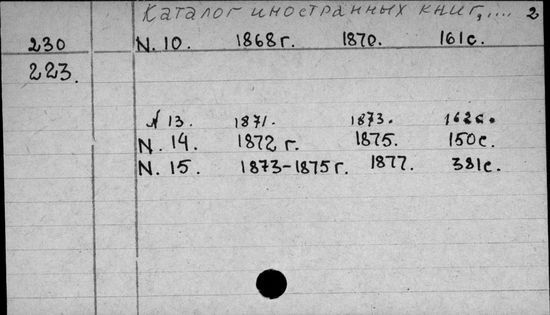 Каталог иностранных книг,.... 2
230 N. 10. 1868 г. 1870. 161 с.
223.
N 13. 1871. 1873. 162 с.
N. 14. 1872 г. 1875. 150 с.
N. 15. 1873-1875 г. 1877. 381 с.